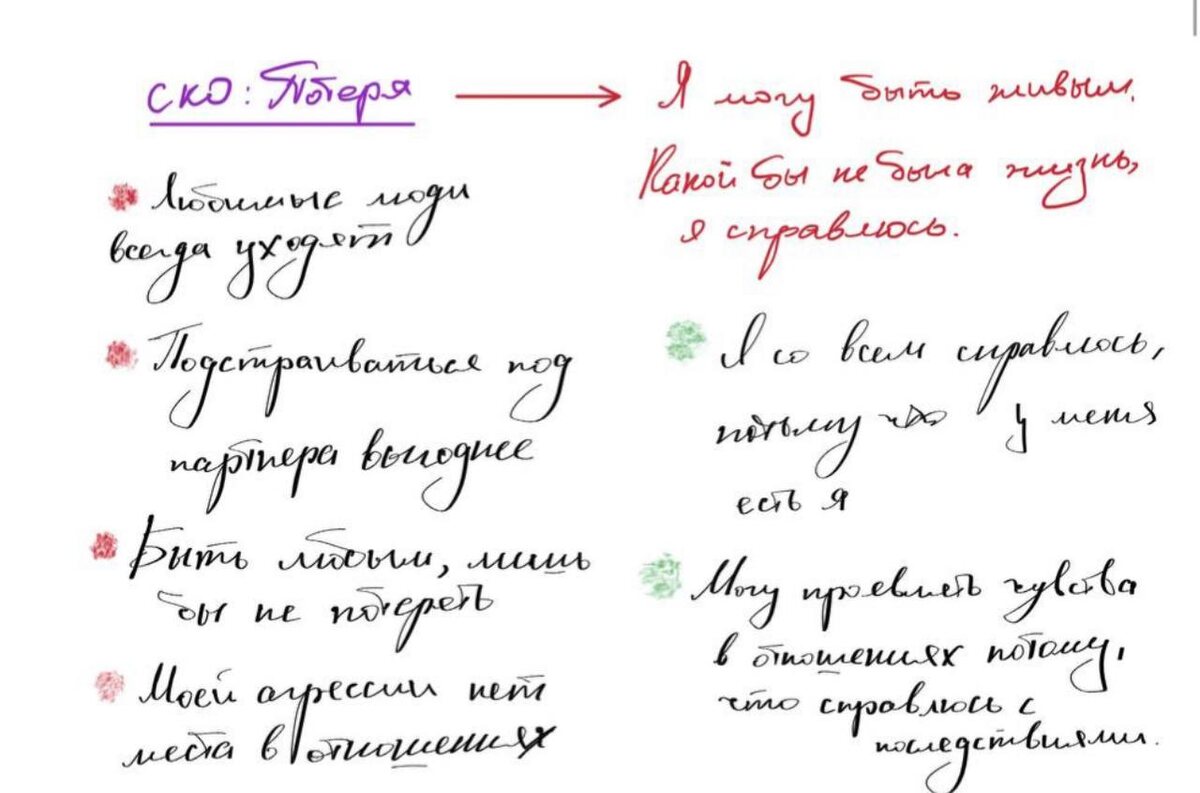 СКО: Потеря
Любимые люди
всегда уходят
Подстраиваться под
партнера выгоднее
Быть любым, лишь
бы не потерять
Моей агрессии нет
места в отношениях
Я могу быть живым.
Какой бы не была жизнь,
я справлюсь.
Я со всем справлюсь,
потому что у меня
есть я
Могу проявлять чувства
в отношениях потому,
что справлюсь с
последствиями.